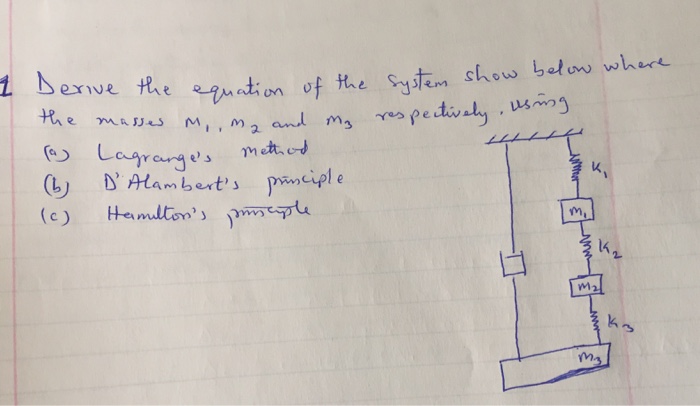 1 Derive the equation of the system show below where
the masses M1, M2 and M3 respectively, using
(a) Lagrange's method
(b) D'Alambert's principle
(c) Hamilton's principle
K1
m1
K2
m2
K3
m3